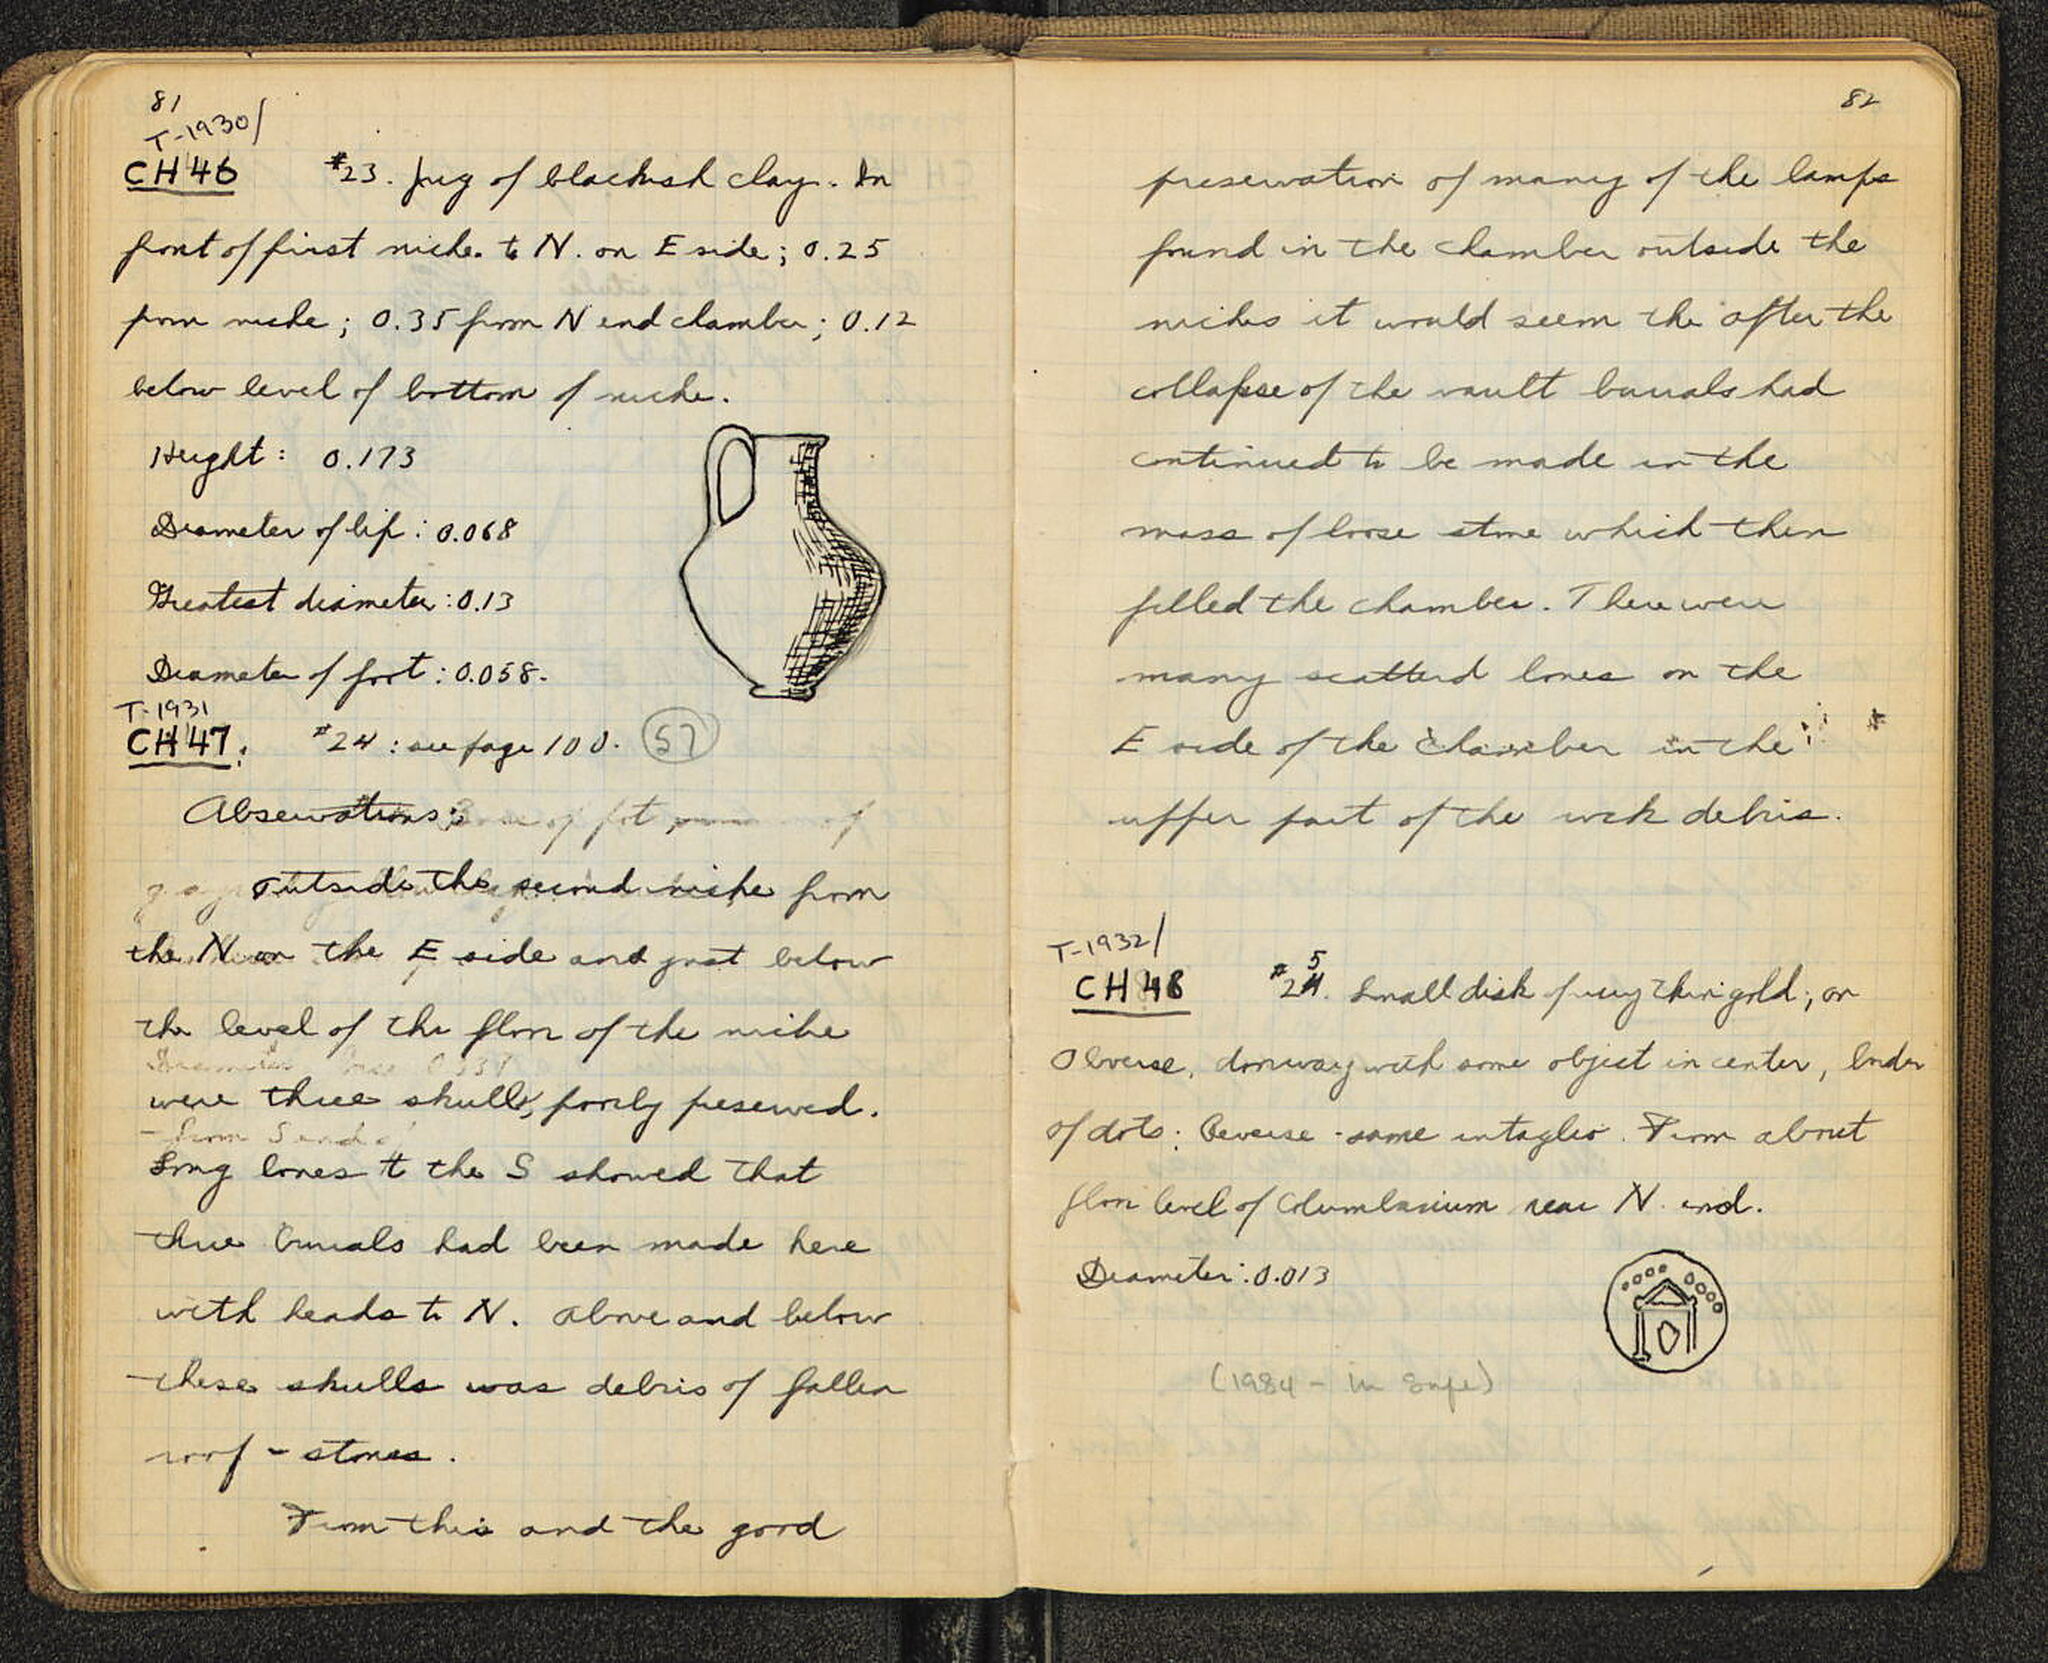 81
T-1930/
CH 46 #23. Jug of blackish clay. In
front of first niche to N. on E side; 0.25
from niche; 0.35 from N end chamber; 0.12
below level of bottom of niche.
Height: 0.173
Diameter of lip: 0.068
Greatest diameter: 0.13
Diameter of foot: 0.058.
T-1931
CH 47: #24: see page 100. 57
Observations:
outside the second niche from
the N on the E side and just below
the level of the floor of the niche
were three skulls, poorly preserved.
- from S end of
Long bones to the S showed that
three burials had been made here
with heads to N. Above and below
these skulls was debris of fallen
roof-stones.
From this and the good
82
preservation of many of the lamps
found in the chamber outside the
niches it would seem the after the
collapse of the vault burials had
continued to be made in the
mass of loose stone which then
filled the chamber. There were
many scatterd bones on the
E side of the chamber in the
upper part of the rock debris.
T-1932/
CH 48 #25. Small disk of very thin gold; on
obverse, doorway with some object in center, border
of dots; Reverse - same intaglio. From about
floor level of Columbarium near N. end.
Diameter: 0.013
(1984 - in safe)